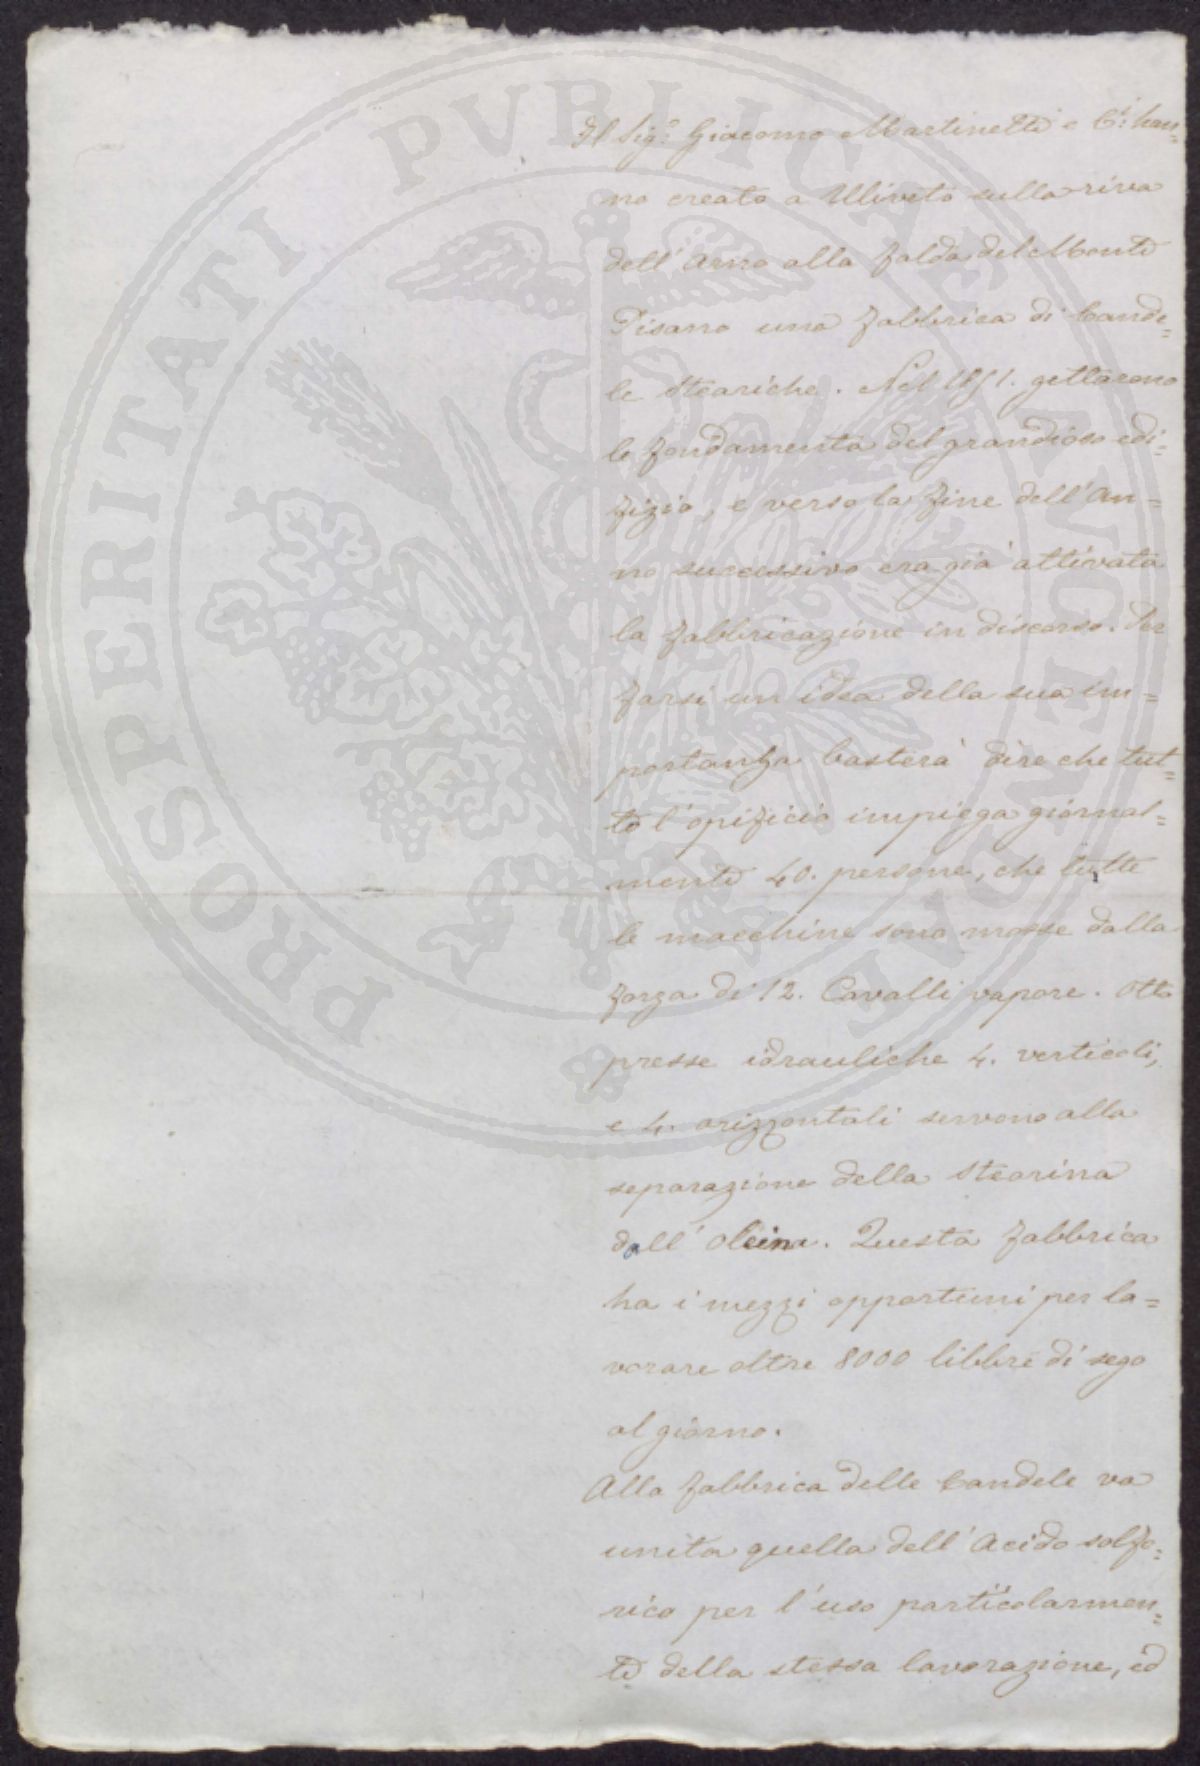 Il Sig.º Giacomo Martinetti e C.i han=
no creato a Uliveto sulla riva
dell'Arno alla falda del Monte
Pisano una fabbrica di Cande=
le Steariche. Nel 1851. gettarono
le fondamenta del grandioso edi=
fizio, e verso la fine dell'An=
no successivo era già attivata
la fabbricazione in discorso. Per
farsi un idea della sua im=
portanza basterà dire che tut=
to l'opificio impiega giornal=
mente 40. persone, che tutte
le macchine sono mosse dalla
forza di 12. Cavalli vapore. Otto
presse idrauliche 4. verticali,
e 4. orizzontali servono alla
separazione della Stearina
dall'Oleina. Questa fabbrica
ha i mezzi opportuni per la=
vorare oltre 8000 libbre di sego
al giorno.
Alla fabbrica delle Candele va
unita quella dell'Acido solfo=
rico per l'uso particolarmen=
te della stessa lavorazione, ed
PROSPERITATI PVBLICAE AVGENDAE